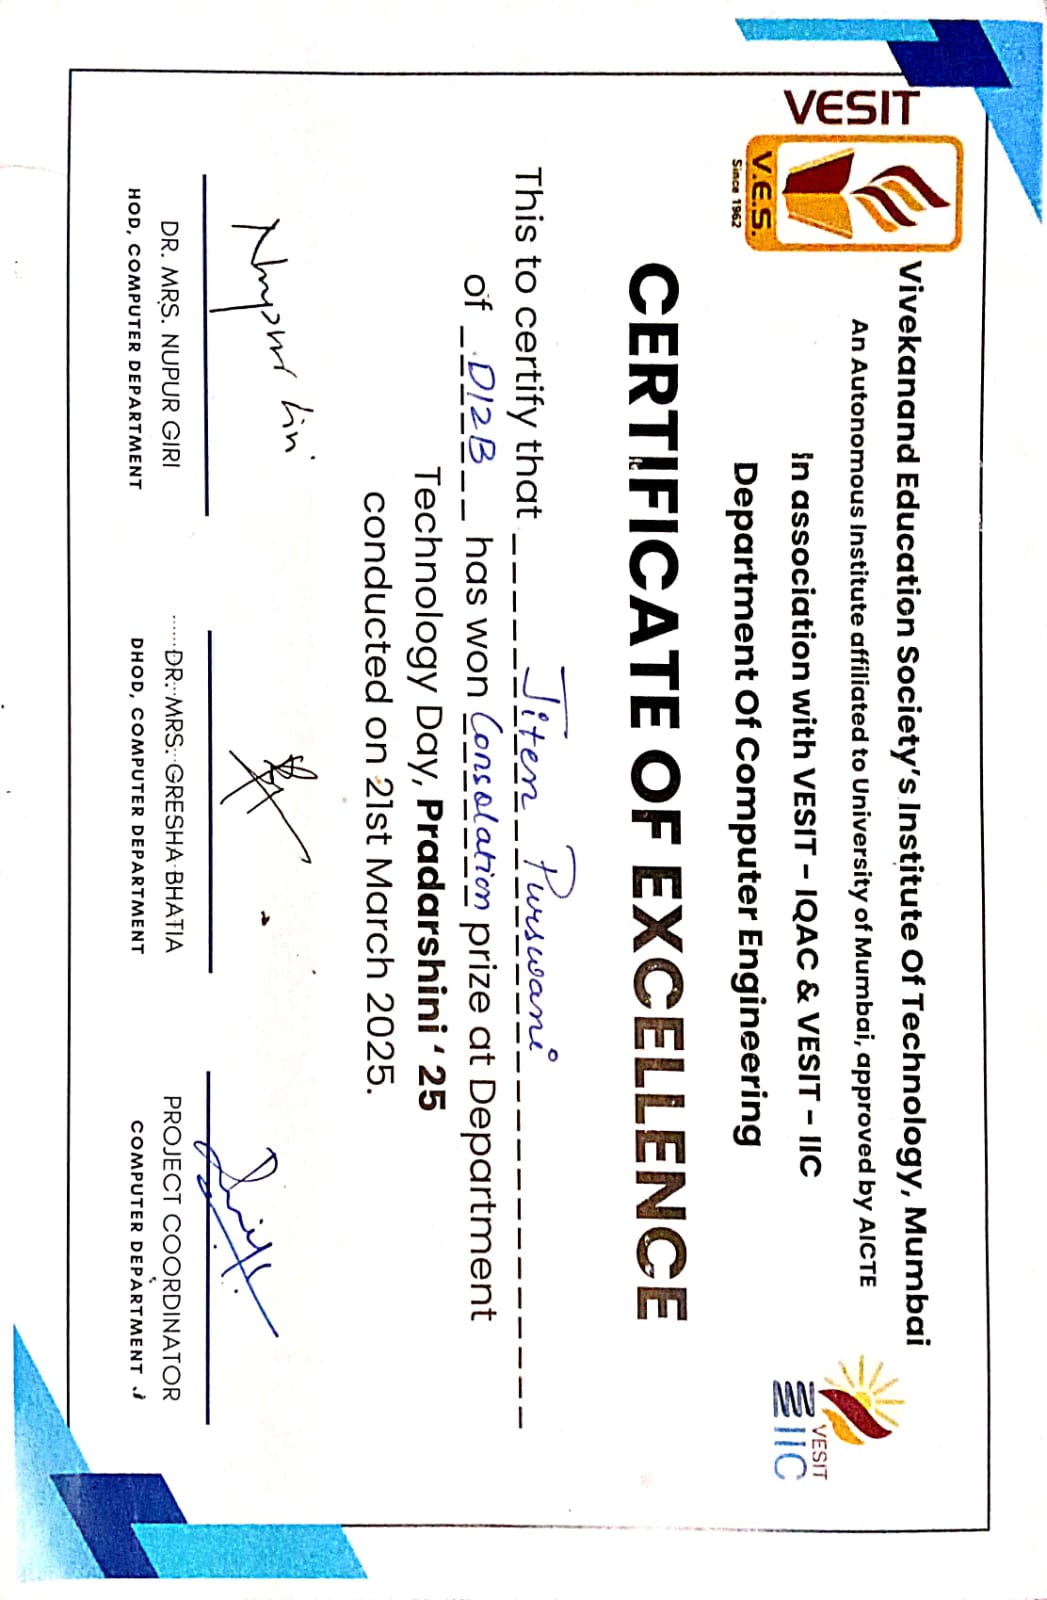 VESIT
V.E.S.
Since 1962
Vivekanand Education Society's Institute Of Technology, Mumbai
An Autonomous Institute affiliated to University of Mumbai, approved by AICTE
In association with VESIT - IQAC & VESIT - IIC
Department Of Computer Engineering
VESIT
IIC
CERTIFICATE OF EXCELLENCE
This to certify that Jiten Purswani
of D12B has won Consolation prize at Department
Technology Day, Pradarshini ' 25
conducted on 21st March 2025.
Nupur Giri
DR. MRS. NUPUR GIRI
HOD, COMPUTER DEPARTMENT
DR. MRS. GRESHA BHATIA
DHOD, COMPUTER DEPARTMENT
PROJECT COORDINATOR
COMPUTER DEPARTMENT